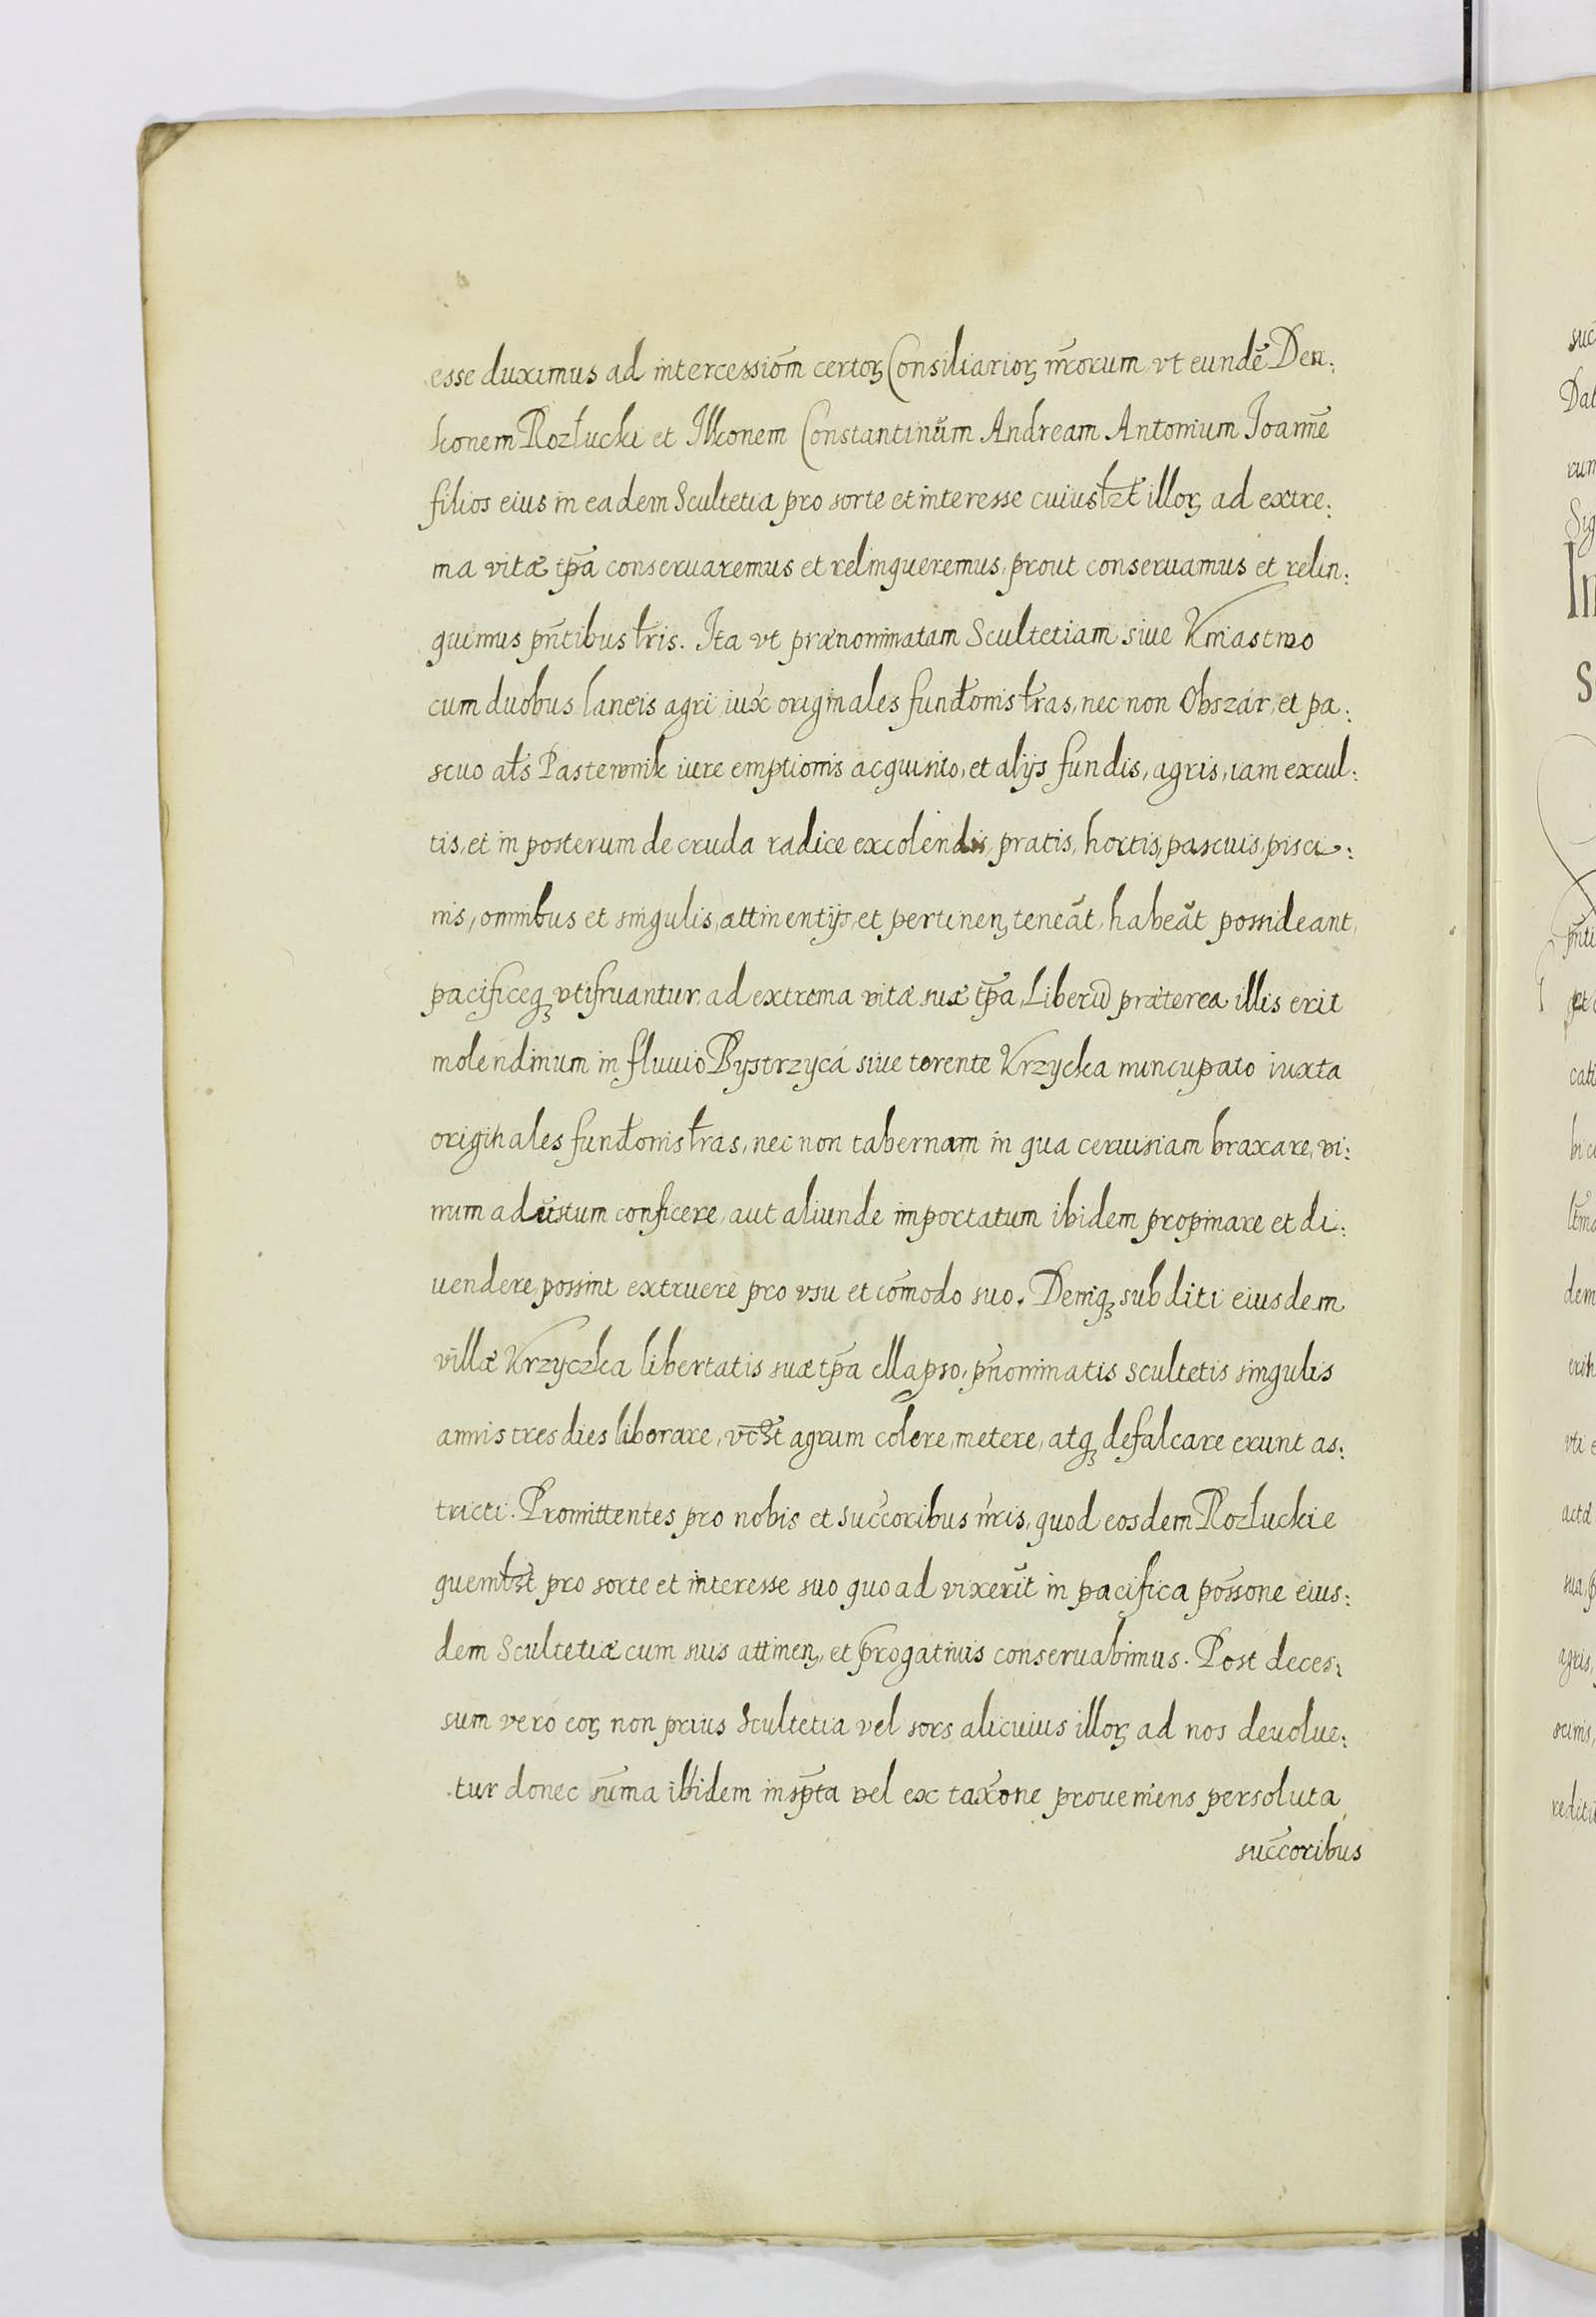 esse duximus ad intercessiōm certoꝝ Consiliarioꝝ nr̄orum vt eundē Den:
konem Rozłucki et Ilkonem Constantinŭm Andream Antonium Joannē
filios eius in eadem Scultetia pro sorte et interesse cuiusłzt illoꝝ ad extre:
ma vitæ tp̄a conseruaremus et relinqueremus, prout conseruamus et relin:
quimus pn̄tibus łris. Ita vt prænominatam Scultetiam siue Kniastwo
cum duobus laneis agri iux̄ originales fundōnis łras, nec non Obszár, et pa:
scuo ałs Pasterwnik iure emptionis acquisito, et alijs fundis, agris, iam excul:
tis, et in posterum de cruda radice excolendis, pratis, hortis, pascuis, pisci:
nis, omnibus et singulis, attinentijs, et pertinenꝫ teneāt, habeāt possideant,
pacificeqꝫ vtifruantur, ad extrema vitæ suæ tp̄a, Liberū præterea illis erit
molendinum in fluuio Bystrzycá siue torente Krzycka nuncupato iuxta
originales fundōnis łras, nec non tabernam in qua ceruisiam braxare, vi:
num adustum conficere, aut aliunde importatum ibidem propinare et di:
uendere possint extruere pro vsu et cōmodo suo. Deniqꝫ subditi eiusdem
villæ Krzyczka libertatis suæ tp̄a ellapso, pn̄ominatis scultetis singulis
annis tres dies liborare, vc̄zt agrum colere, metere, atqꝫ defalcare erunt as:
tricti. Promittentes pro nobis et succ̄oribus nr̄is, quod eosdem Rozłuckie
quemłzt pro sorte et interesse suo quoad vixerūt in pacifica pōssone eius:
dem Scultetiæ cum suis attinenꝫ, et p̄rogatiuis conseruabimus. Post deces:
sum vero eoꝝ non prius Scultetia vel sors alicuius illoꝝ ad nos deuolue:
tur donec sūma ibidem insp̄ta vel ex tax̄one proueniens persoluta
succ̄oribus